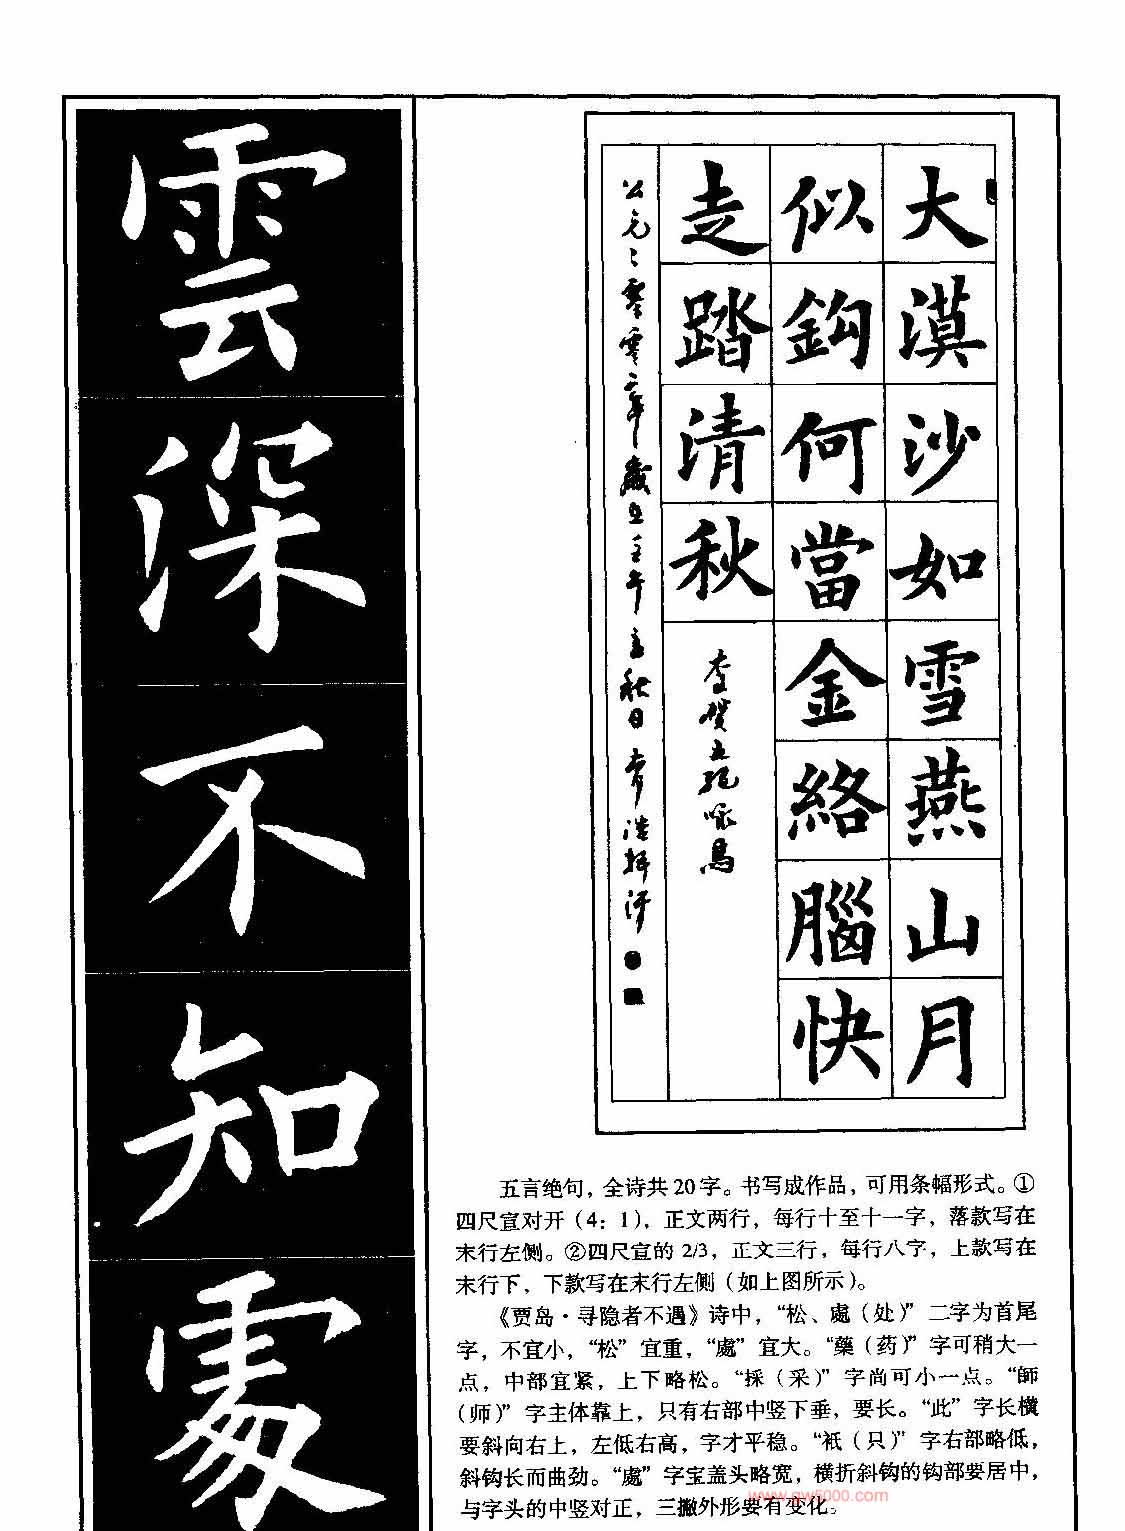 雲深不知處
大漠沙如雪燕山月
似鈎何當金絡腦快
走踏清秋
李賀五絕咏馬
五言绝句，全诗共20字。书写成作品，可用条幅形式。①
四尺宣对开（4：1），正文两行，每行十至十一字，落款写在
末行左侧。②四尺宣的 2/3，正文三行，每行八字，上款写在
末行下，下款写在末行左侧（如上图所示）。
《贾岛·寻隐者不遇》诗中，“松、處（处）”二字为首尾
字，不宜小，“松”宜重，“處”宜大。“藥（药）”字可稍大一
点，中部宜紧，上下略松。“採（采）”字尚可小一点。“師
（师）”字主体靠上，只有右部中竖下垂，要长。“此”字长横
要斜向右上，左低右高，字才平稳。“衹（只）”字右部略低，
斜钩长而曲劲。“處”字宝盖头略宽，横折斜钩的钩部要居中，
与字头的中竖对正，三撇外形要有变化。
www.gw5000.com